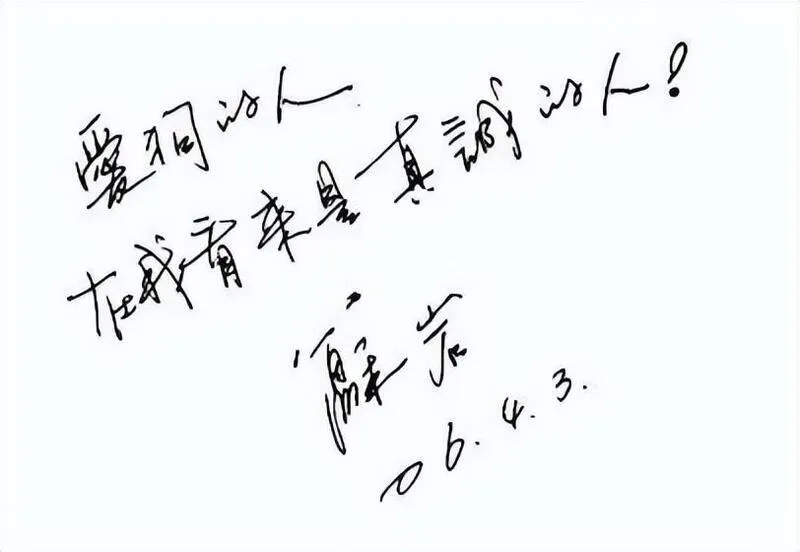 愛狗的人
在我看来是真誠的人!
蘇岩
06.4.3.